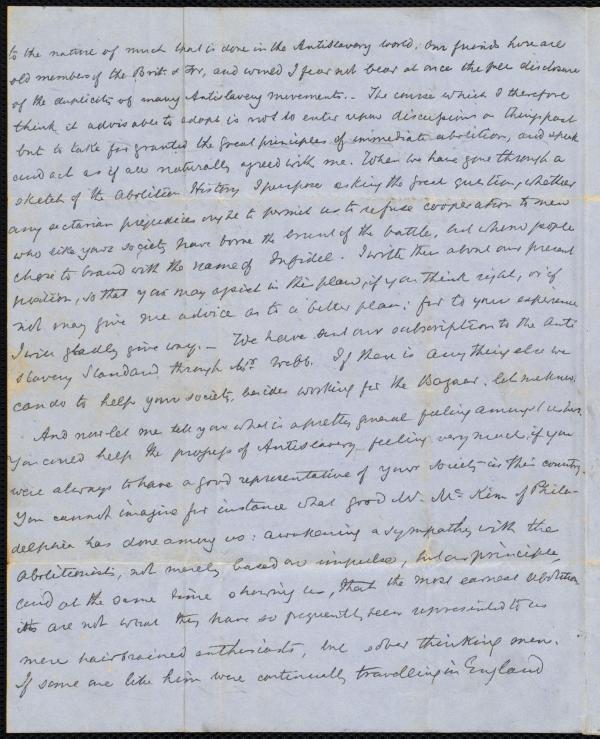 to the nature of much that is done in the Antislavery world. Our friends here are
old members of the Brit. & For, and would I fear not bear at once the free disclosure
of the duplicity of many Antislavery movements. - The course which I therefore
think it advisable to adopt is not to enter upon discussions on things past
but to take for granted the great principles of immediate abolition, and speak
and act as if all naturally agreed with me. When we have gone through a
sketch of the Abolition History I purpose asking the great question, whether
any sectarian prejudices ought to permit us to refuse cooperation to men
who like your society have borne the brunt of the battle, but whom people
chose to brand with the name of Infidel. I write thus about our present
position, so that you may assist in the plan, if you think right, or if
not may give me advice as to a better plan; for to your experience
I will gladly give way. - We have sent our subscription to the Anti
slavery Standard through Mr. Webb. If there is anything else we
can do to help your society, besides working for the Bazaar, let me know.
And now let me tell you what is a pretty general feeling amongst us here.
You could help the progress of Antislavery feeling very much, if you
were always to have a good representative of your society in this country.
You cannot imagine for instance what good Mr. Mc Kim of Phila-
delphia has done among us: awakening a sympathy with the
abolitionists, not merely based on impulse, but on principle,
and at the same time showing us, that the most earnest abolition
ists are not what they have so frequently been represented to us
mere hairbrained enthusiasts, but sober thinking men.
If some one like him were continually travelling in England